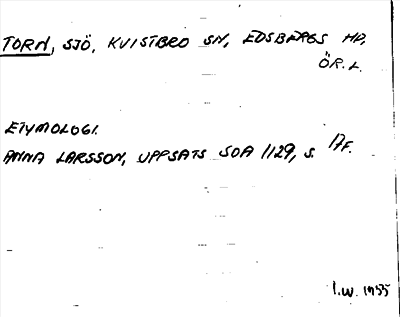 TORN, SJÖ, KVISTBRO SN, EDSBERGS HD,
ÖR.L.
ETYMOLOGI.
ANNA LARSSON, UPPSATS SOA 1129, S. 17F.
I.W. 1955